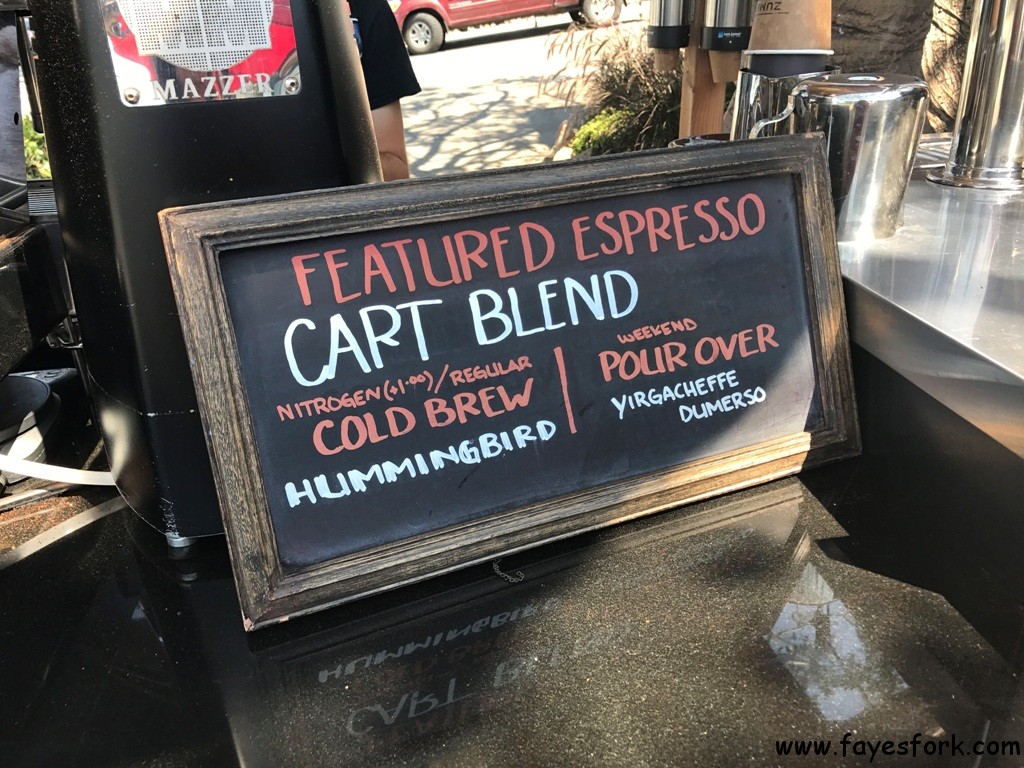 MAZZER
FEATURED ESPRESSO
CART BLEND
NITROGEN (+1.00) / REGULAR
COLD BREW
HUMMINGBIRD
WEEKEND
POUR OVER
YIRGACHEFFE
DUMERSO
www.fayesfork.com